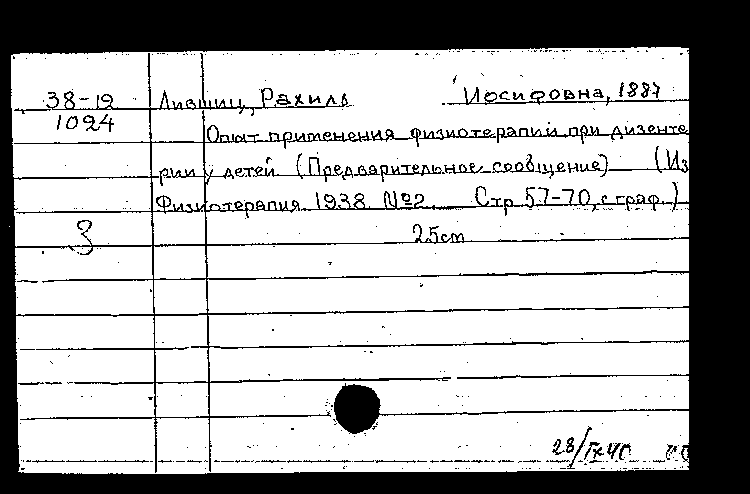 38-19 Лившиц, Рахиль Иосифовна, 1887
1024 Опыт применения физиотерапии при дизенте
рии у детей (Предварительное сообщение) (Из
Физиотерапия 1938 №2. Стр 57-70, с граф.)
З 25cm
28/IX 40